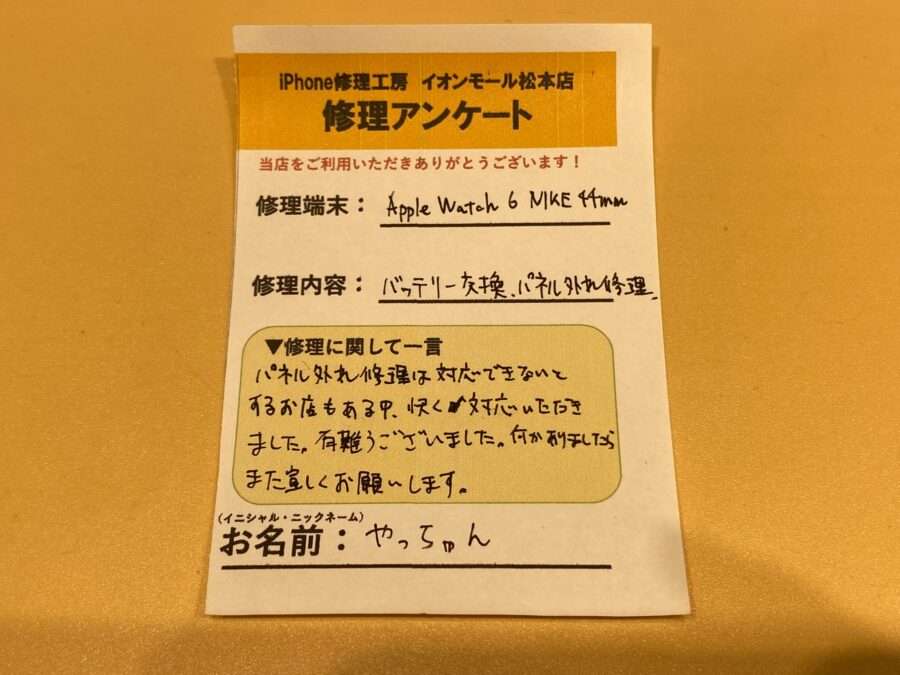 iPhone修理工房 イオンモール松本店
修理アンケート
当店をご利用いただきありがとうございます！
修理端末： Apple Watch 6 NIKE 44mm
修理内容： バッテリー交換、パネル外れ修理、
▼修理に関して一言
パネル外れ修理は対応できないと
するお店もある中、快く対応いただき
ました。有難うございました。何かありましたら
また宜しくお願いします。
（イニシャル・ニックネーム）
お名前： やっちゅん